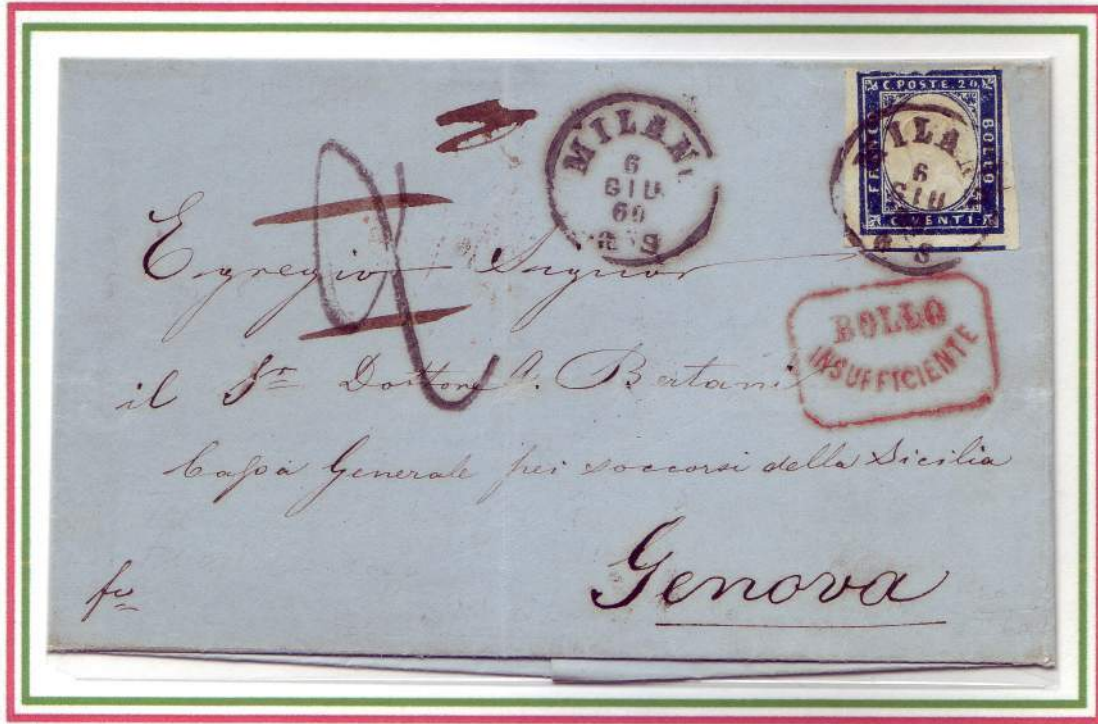 C. POSTE. 20
FRANCO
BOLLO
C. VENTI
MILAN
6
GIU
60
MILA
6
GIU
8
BOLLO
INSUFFICIENTE
Egregio Signor
il Sr Dottore A. Bertani
Cassa Generale pei soccorsi della Sicilia
Genova